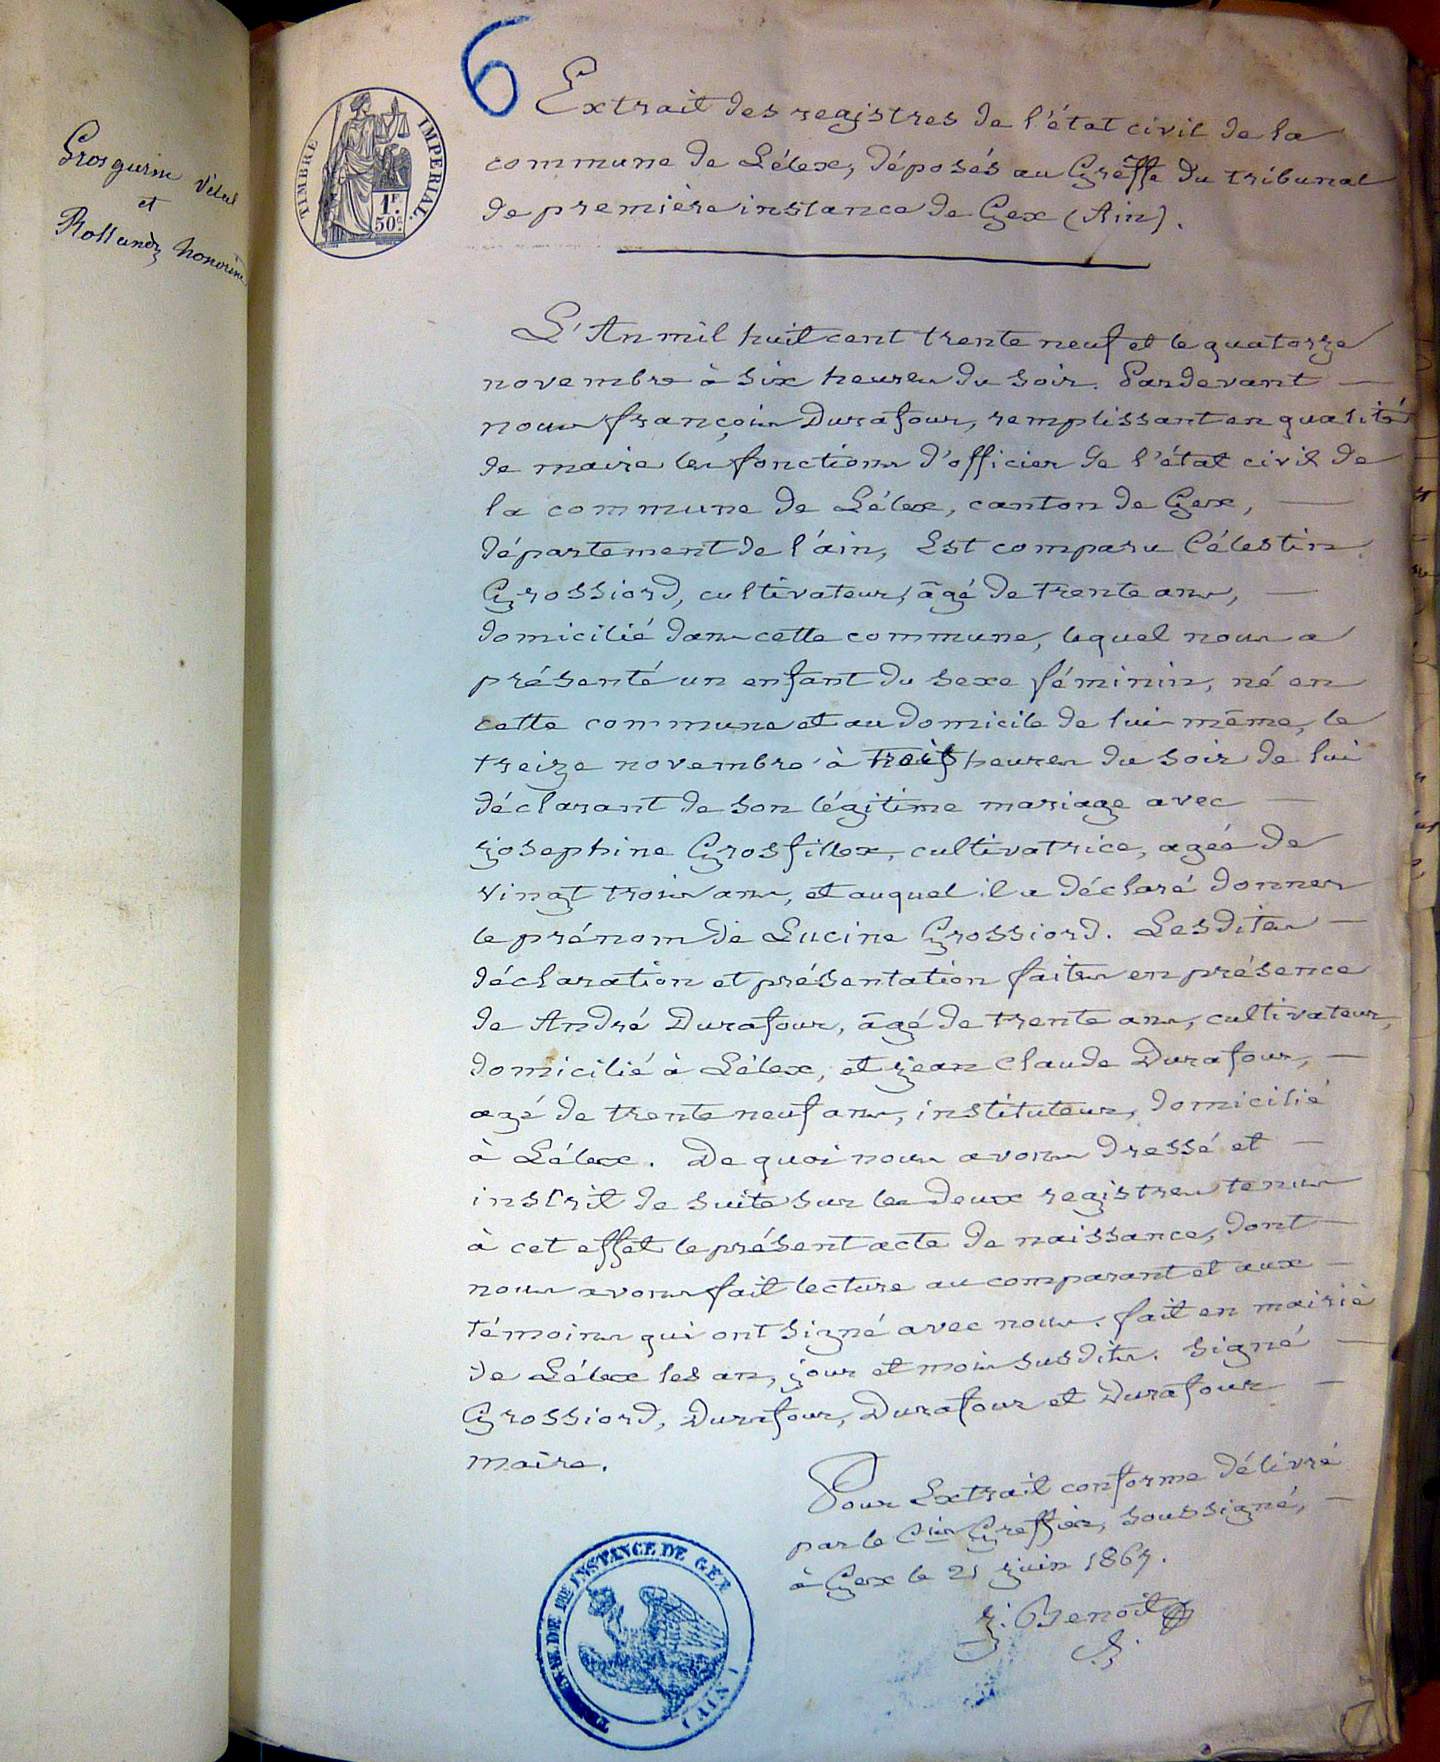 6
Grosgurin Vital
et
Rollandez honorine
TIMBRE IMPERIAL
1F.
50c.
Extrait des registres de l'état civil de la
commune de Lélex, déposés au Greffe du tribunal
de première instance de Gex (Ain).
L'An mil huit cent trente neuf et le quatorze
novembre à six heures du soir. Pardevant —
nous françois Durafour, remplissant en qualité
de maire les fonctions d'officier de l'état civil de
la commune de Lélex, canton de Gex, —
département de l'ain, Est comparu Célestin
Grossiord, cultivateur, âgé de trente ans, —
domicilié dans cette commune, lequel nous a
présenté un enfant du sexe féminin, né en
cette commune et au domicile de lui-même, le
treize novembre à trois heures du soir de lui
déclarant de son légitime mariage avec —
josephine Grosfillex, cultivatrice, agée de
vingt trois ans, et auquel il a déclaré donner
le prénom de Lucine Grossiord. Lesdites —
déclaration et présentation faites en présence
de André Durafour, âgé de trente ans, cultivateur,
domicilié à Lélex, et jean Claude Durafour, —
agé de trente neuf ans, instituteur, domicilié
à Lélex. De quoi nous avons dressé et —
inscrit de suite sur les deux registres tenus
à cet effet le présent acte de naissance, dont —
nous avons fait lecture au comparant et aux —
témoins qui ont signé avec nous. fait en mairie
de Lélex les an, jour et mois susdits. Signé —
Grossiord, Durafour, Durafour et Durafour —
maire.
Pour Extrait conforme délivré
par le Cis Greffier, soussigné, —
à Gex le 21 juin 1867.
j. Benoit
TRIBUNAL DE 1RE INSTANCE DE GEX
(AIN)